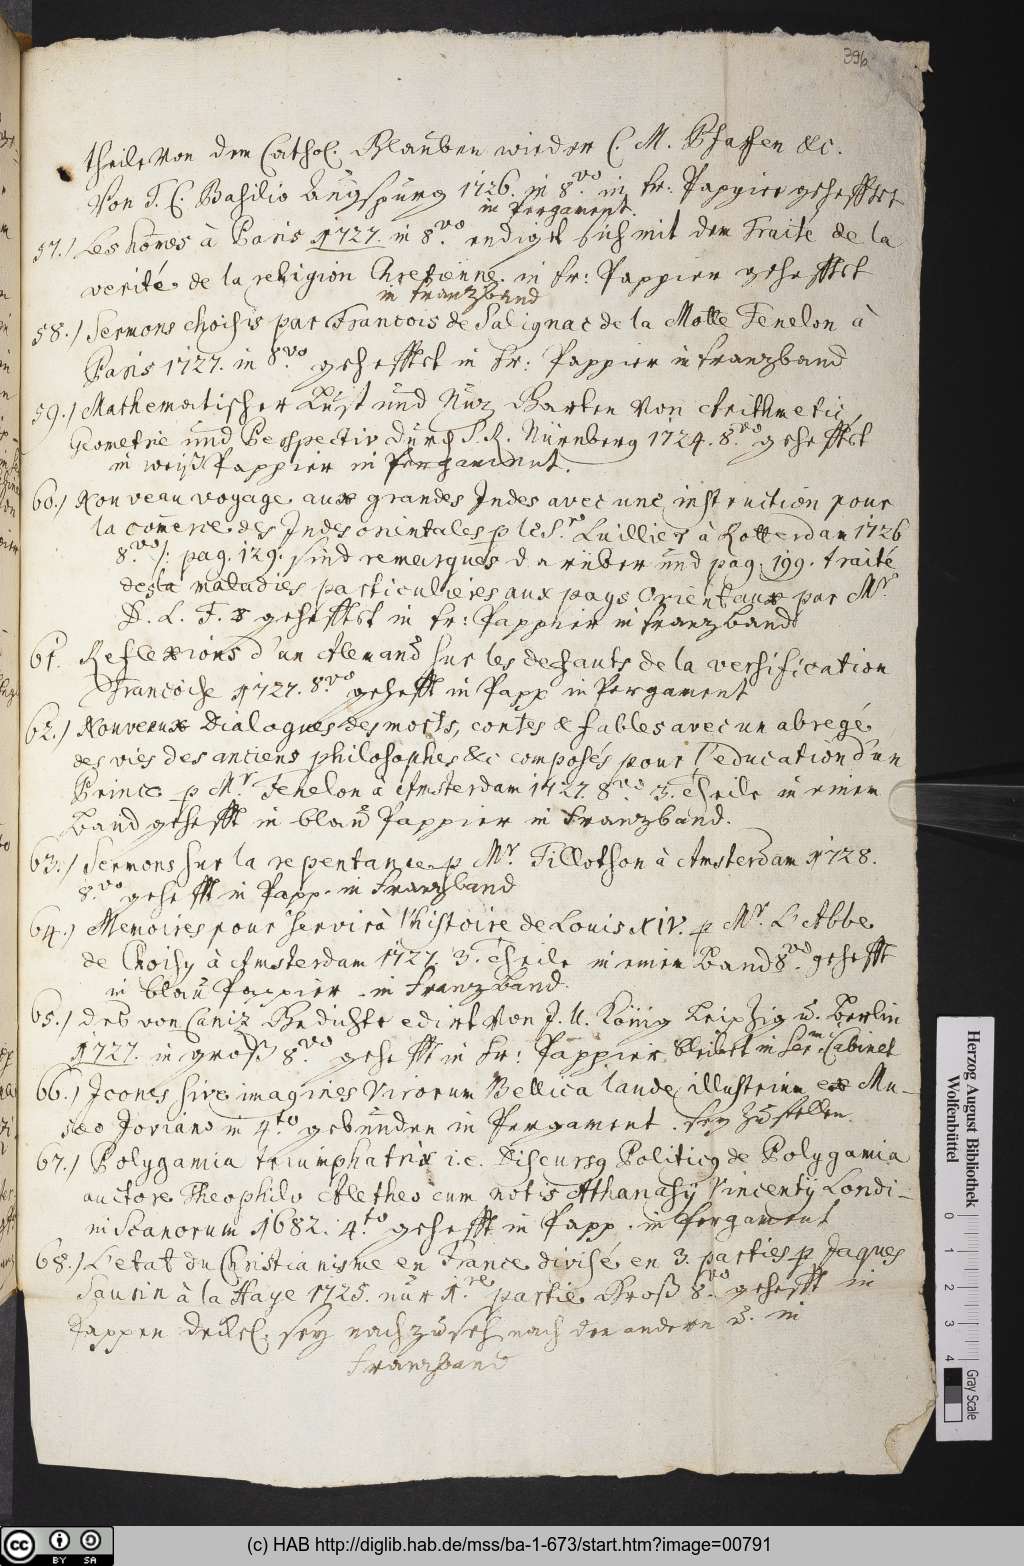 396
theile von dem Cathol. Glauben wieder C. M. Pfaffen &c.
Von F. C. Basilio Augspurg 1726. in 8.vo in fr: Pappier gehefftet
in Pergament.
57.) Les homes à Paris 1727. in 8.vo endigt sich mit dem Traite de la
verité de la religion Chretienne. in fr: Pappier gehefftet
in Franzband
58.) Sermons choisis par Francois de Salignac de la Motte Fenelon à
Paris 1727. in 8.vo gehefftet in fr: Pappier in Franzband
59.) Mathematischer Lust und Nuz Garten von Arithmetic,
Geometrie und Perspectiv durch S. R. Nürnberg 1724. 8.vo gehefftet
in weiß Pappier in Pergament.
60.) Nouveau voyage aux grandes Indes avec une instruction pour
la comerce des Indes orientales p le Sr. Luillier à Rotterdam 1726
8.vo /: pag. 129. sind remarques darüber und pag. 199. traité
des maladies particulieres aux pays Orientaux par Mr.
D. L. F. gehefftet in fr: Pappier in Franzband
61. Reflexions d'un Alemand sur les defauts de la versification
Francoise 1727. 8.vo gehefft in Papp in Pergament
62.) Nouveaux Dialogues des morts, contes & fables avec un abregé
des vies des anciens philosophes &c composés pour l'education d'un
Prince p Mr. Fenelon à Amsterdam 1727. 8.vo 3. Theile in einem
Band gehefft in blau Pappier in Franzband.
63.) Sermons sur la repentance p Mr. Tillotson à Amsterdam 1728.
8.vo gehefft in Papp. in Franzband
64.) Memoires pour servir à l'histoire de Louis XIV. p Mr. L'Abbe
de Choisy à Amsterdam 1727. 3. Theile in einem Band 8.vo gehefft
in blau Pappier in Franzband.
65.) des von Caniz Gedichte edirt von J. U. König Leipzig u. Berlin
1727. in groß 8.vo gehefft in fr: Pappier. bleibet in Ser.m Cabinet
66.) Icones sive imagines Virorum Bellica laude illustrium ex Mu-
saeo Joviano in 4.to gebunden in Pergament. sey zu stellen.
67.) Polygamia triumphatrix i.e. Discursq Politicq de Polygamia
auctore Theophilo Aletheo cum notis Athanasij Vincentij Londi-
ni Scanorum 1682. 4.to gehefft in Papp. in Pergament
68.) L'etat du Christianisme en France divisé en 3. parties p Jaques
Saurin à la Haye 1725. nur 1.re partie Groß 8.vo gehefft in
Pappen deckel. sey nachzuseh. nach den andern u. in
Franzband
Herzog August Bibliothek
Wolfenbüttel
0 1 2 3 4
Gray Scale
cc BY SA
(c) HAB http://diglib.hab.de/mss/ba-1-673/start.htm?image=00791